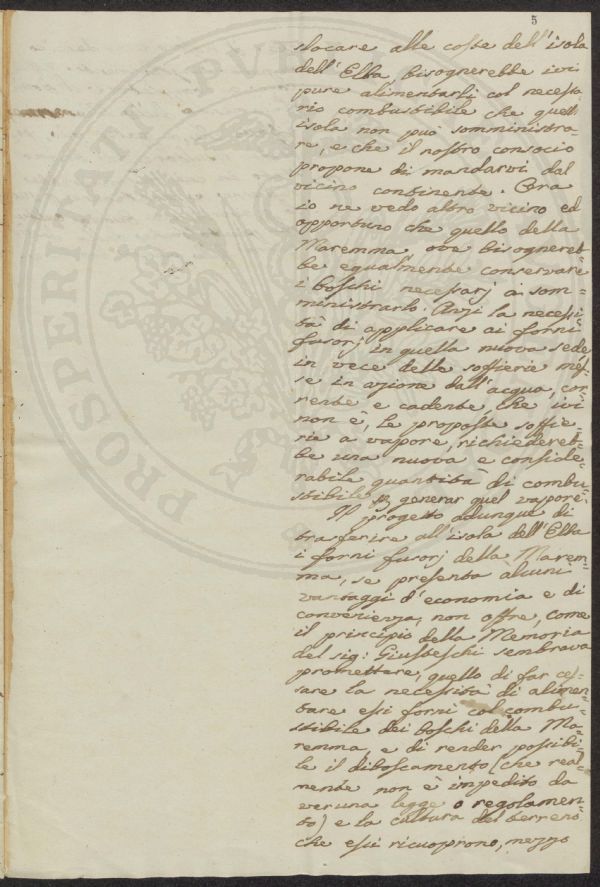 5
slocare alle coste dell'isola
dell'Elba, bisognerebbe ivi
pure alimentarli col necessa
rio combustibile che quell'
isola non può somministra=
re, e che il nostro consocio
propone di mandarvi dal
vicino continente. Ora
io ne vedo altro vicino ed
opportuno che quello della
Maremma ove bisogneret=
be egualmente conservare
i boschi necessarj a som=
ministrarlo. Anzi la necessi=
tà di applicare ai forni
fusorj in quella nuova sede
in vece delle soffierie mes=
se in azione dall'acqua, cor=
rente e cadente, che ivi
non è, le proposte soffie=
rie a vapore, richiederet=
be una nuova e conside=
rabile quantità di combu=
stibile p generar quel vapore.
Il progetto adunque di
trasferire all'isola dell'Elba
i forni fusorj della Marem=
ma, se presenta alcuni
vantaggi d'economia e di
convenienza, non offre, come
il principio della Memoria
del sig: Giusteschi sembrava
promettere, quello di far ces=
sare la necessità di alimen=
tare essi forni col combu=
stibile dei boschi della Ma=
remma, e di render possibi=
le il diboscamento (che real=
mente non è impedito da
veruna legge o regolamen=
to) e la cultura del terreno
che essi ricuoprono, mezzo
PROSPERITATI PVB